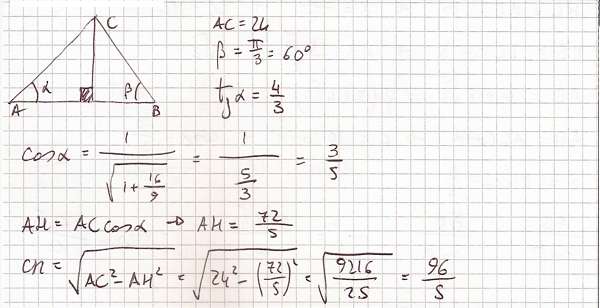 C
α
β
A
B
AC = 24
β = π/3 = 60°
tg α = 4/3
cos α = 1/√(1 + 16/9) = 1/(5/3) = 3/5
AH = AC cos α → AH = 72/5
CH = √(AC² - AH²) = √(24² - (72/5)²) = √(9216/25) = 96/5